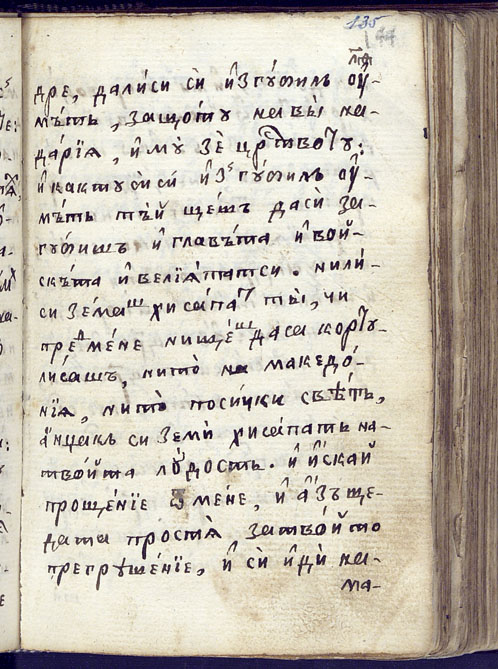 135
144
дре, дали́си сѝ и҆згꙋ́биль ᲂу҆-
мъ́ть, защо́то навы̀ ка-
да́рїѧ, и҆мꙋ̀ зѐ црⷭ҇твото:
и҆ както си сѝ и҆згꙋ́биль ᲂу҆-
мъ́ть тъ́й ще́шъ дасѝ за-
гꙋ́бишъ и҆ глава́та и҆ вой-
ска́та и҆ велїѧ́татси. нили́-
си зе́машⷲ хиса́пат ты̀, чи
предⷣ ме́не нище́шⷲ даса кор҆то-
ли́сашъ, нито̀ на македо́-
нїѧ, нито̀ поси́чки свѣ́ть,
а҆нцакъ си земѝ хиса́пать на-
тво́йта лꙋ́дость. и҆ и҆́скай
проще́нїе ѿ ме́не, и҆ а҆́зъще-
дата простѧ̀ затво́йто
прегрѣше́нїе, и҆ сѝ и҆дѝ на-
ма-